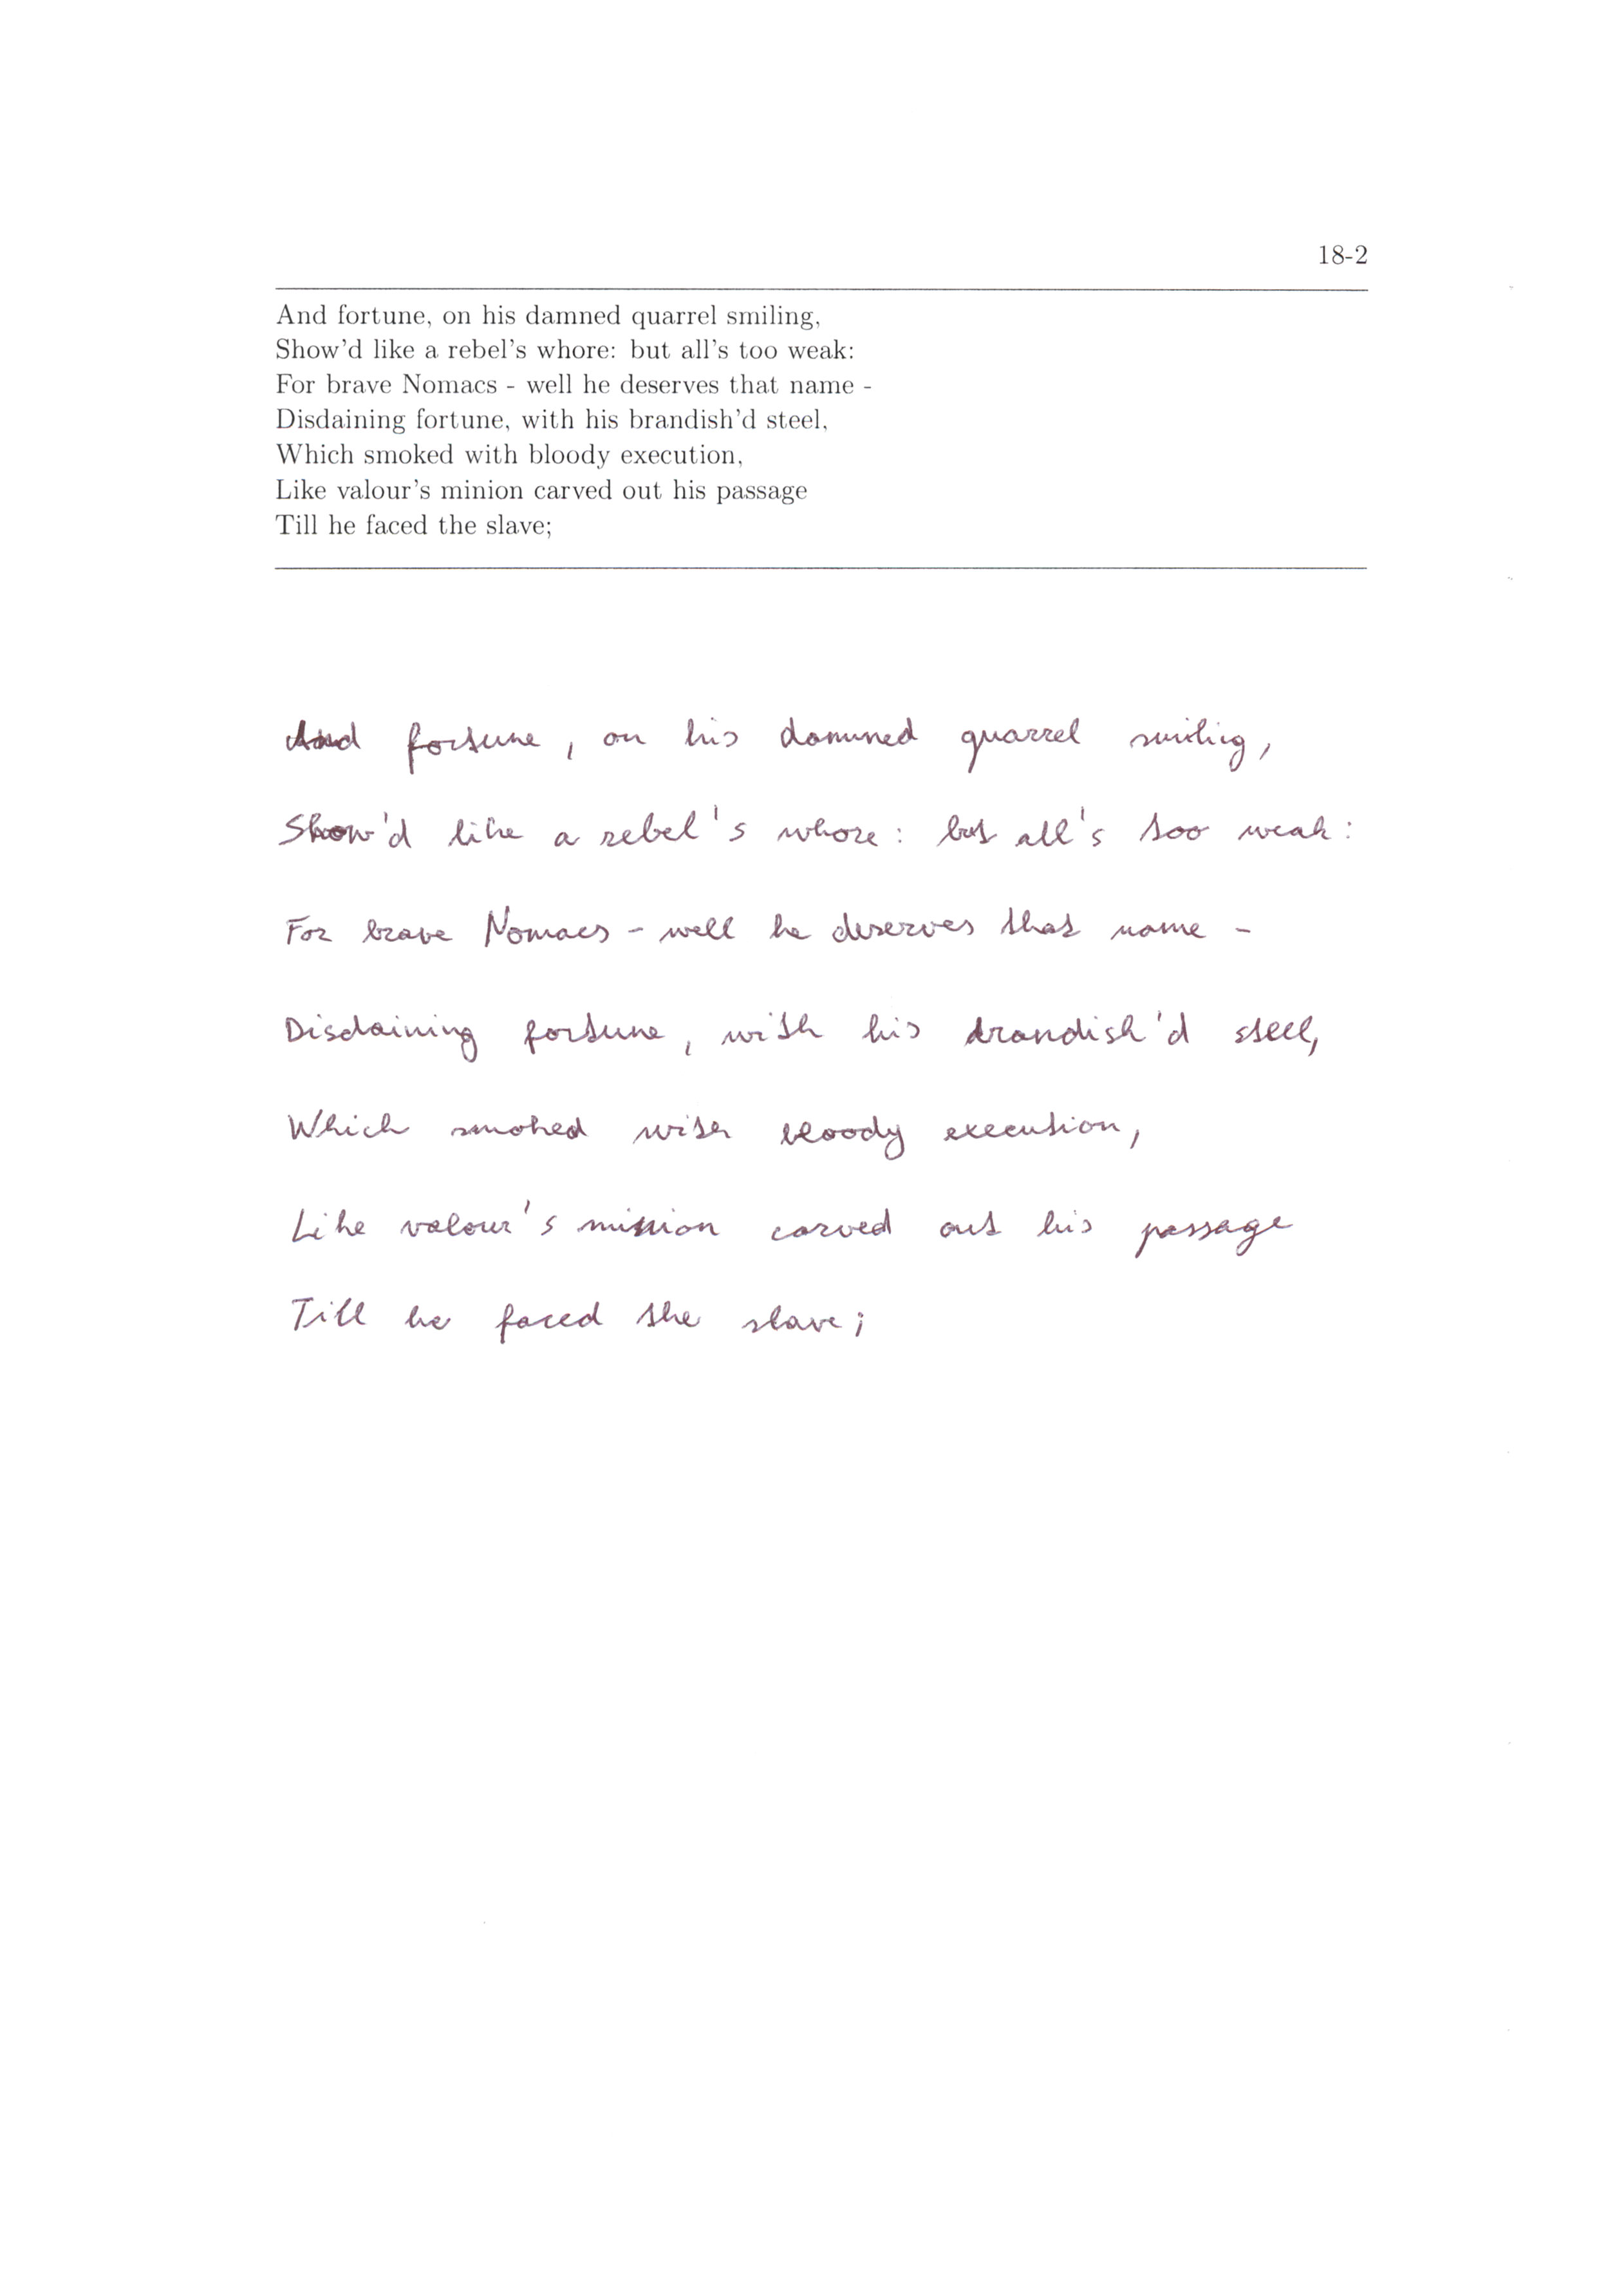 18-2
And fortune, on his damned quarrel smiling,
Show'd like a rebel's whore: but all's too weak:
For brave Nomacs - well he deserves that name -
Disdaining fortune, with his brandish'd steel,
Which smoked with bloody execution,
Like valour's minion carved out his passage
Till he faced the slave;
And fortune, on his damned quarrel smiling,
Show'd like a rebel's whore: but all's too weak:
For brave Nomacs - well he deserves that name -
Disdaining fortune, with his brandish'd steel,
Which smoked with bloody execution,
Like valour's minion carved out his passage
Till he faced the slave;